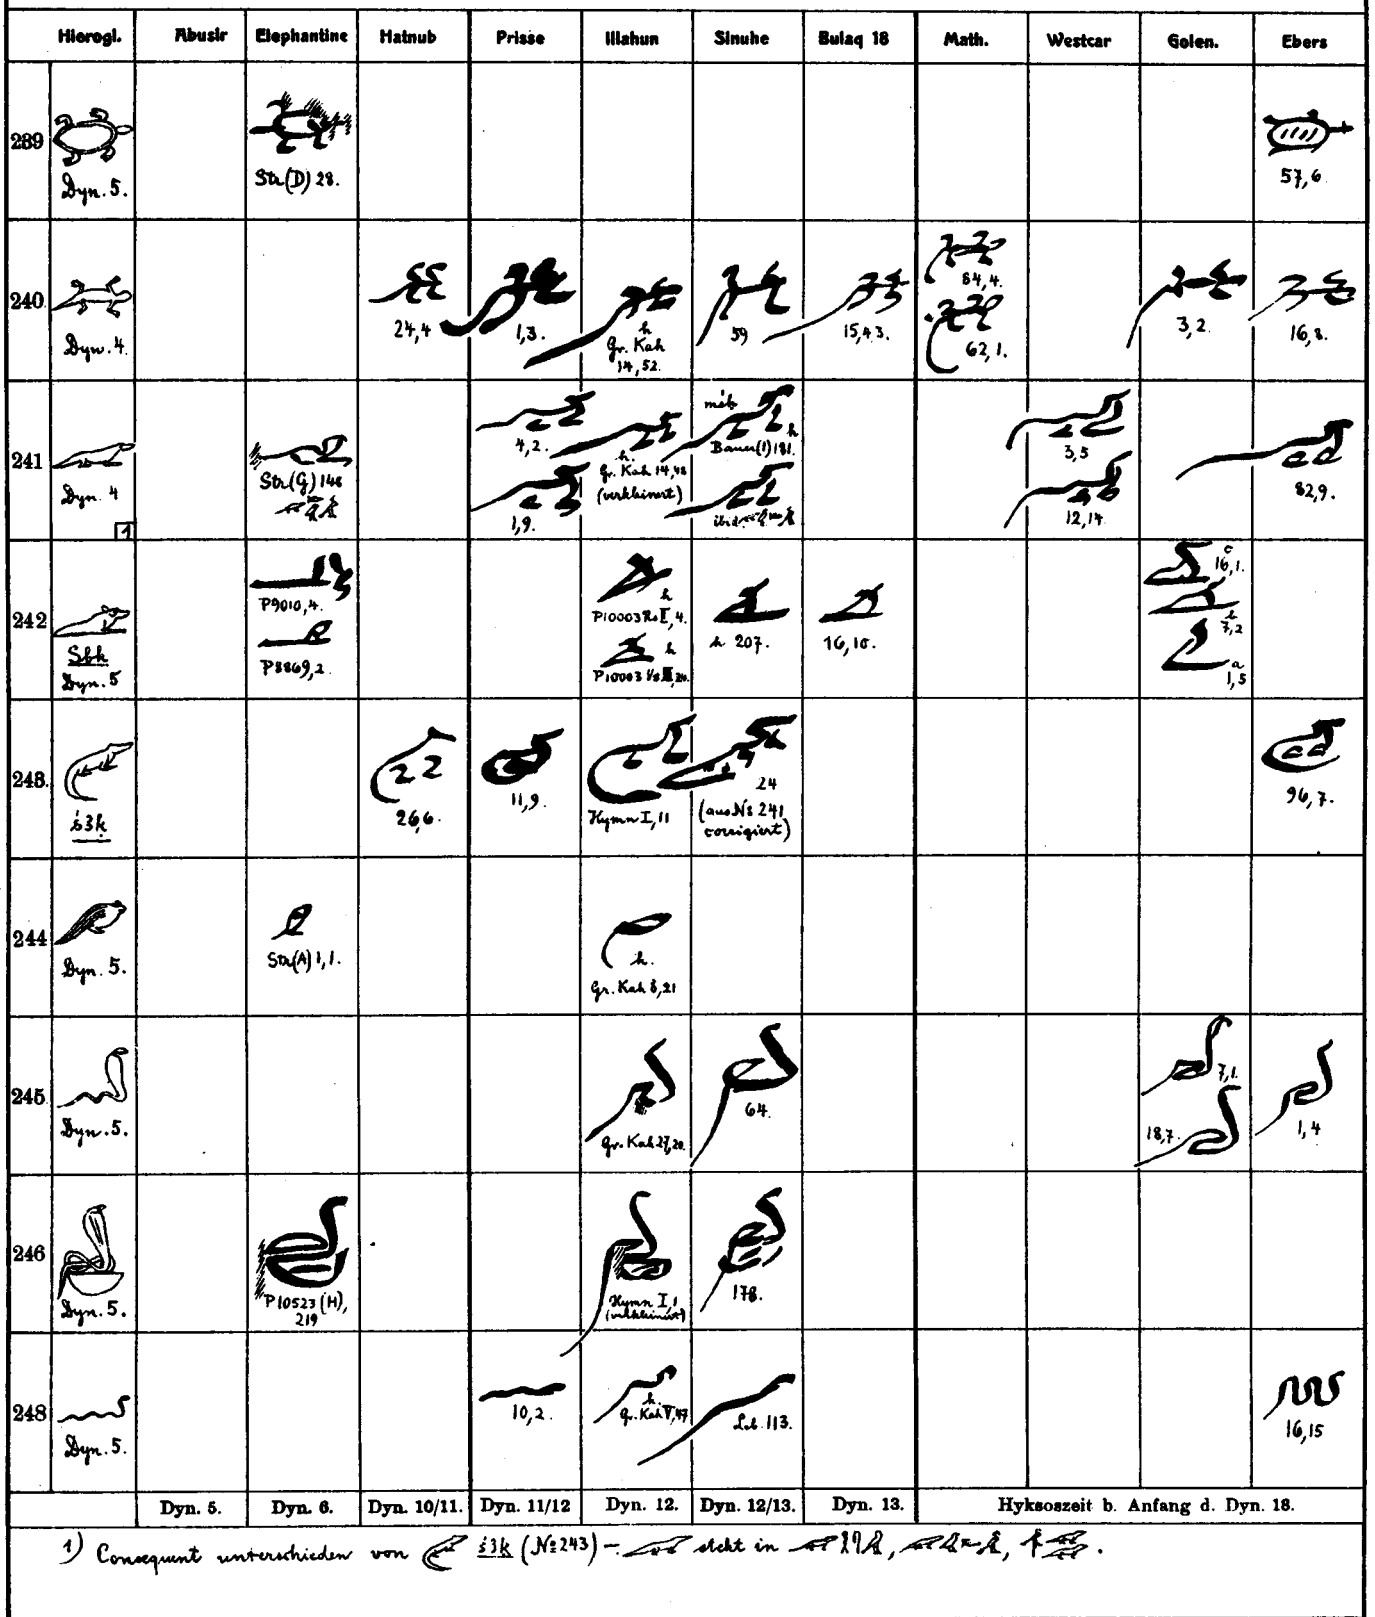 Hierogl. Abusir Elephantine Hatnub Prisse Illahun Sinuhe Bulaq 18 Math. Westcar Golen. Ebers
239
Dyn. 5.
Str(D) 28.
57,6
240
Dyn. 4.
24,4
1,3.
h
Gr. Kah
14,52.
59
15,43.
84,4.
62,1.
3,2.
16,8.
241
Dyn. 4
1
Str.(G) 148
4,2.
1,9.
h.
Gr. Kah 14,48
(verkleinert)
h
Bauer(1) 181.
ibid.
3,5
12,14
82,9.
242
Sbk
Dyn. 5
P9010,4.
P8869,2.
h
P10003 Rs I,4.
h
P10003
h 207.
16,10.
c
16,1.
b
7,2
a
1,5
243.
ś3k
26,6.
11,9.
Hymn I,11
24
(aus № 241
corrigiert)
96,7.
244
Dyn. 5.
Str(A) 1,1.
h.
Gr. Kah 3,21
245
Dyn. 5.
Gr. Kah 27,20.
64.
7,1.
18,7.
1,4
246
Dyn. 5.
P10523 (H),
219
Hymn I,1
(verkleinert)
178.
248
Dyn. 5.
10,2.
h.
Gr. Kah V,47
Leb. 113.
16,15
Dyn. 5. Dyn. 6. Dyn. 10/11. Dyn. 11/12 Dyn. 12. Dyn. 12/13. Dyn. 13. Hyksoszeit b. Anfang d. Dyn. 18.
1) Consequent unterschieden von ś3k (№ 243) – steht in , , .